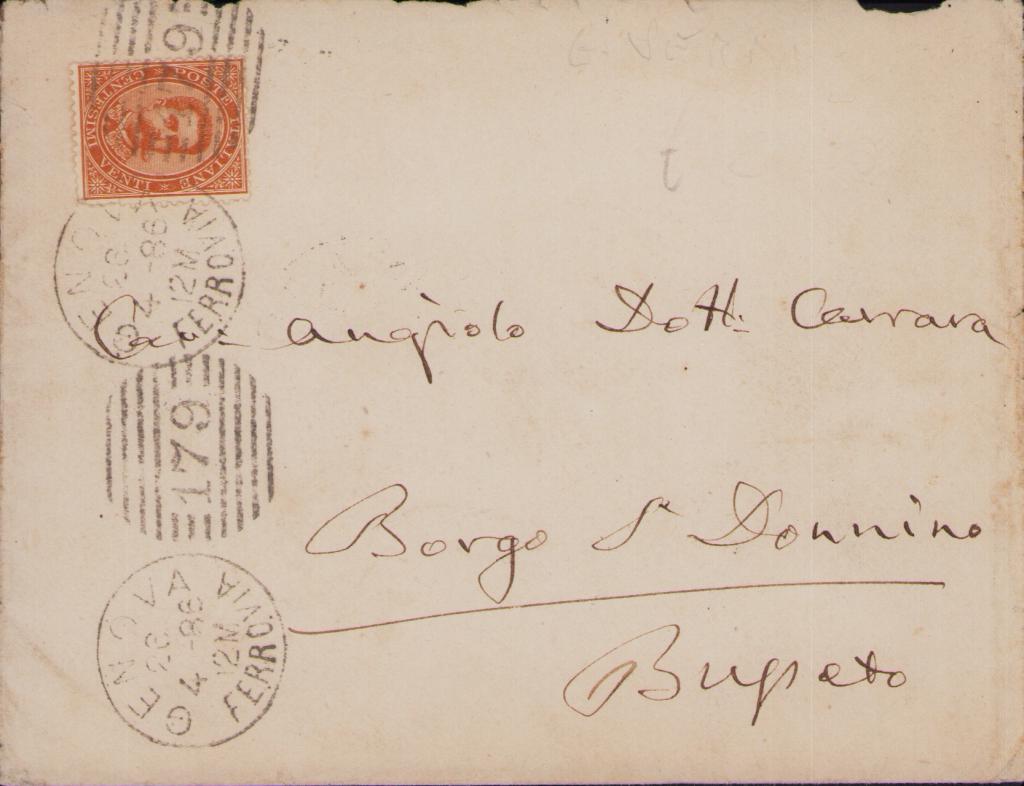 POSTE ITALIANE
CENTESIMI VENTI
GENOVA
26
4 -86
12M
FERROVIA
Cav. Angiolo Dott. Carrara
179
Borgo S. Donnino
Busseto
GENOVA
26
4 -86
12M
FERROVIA